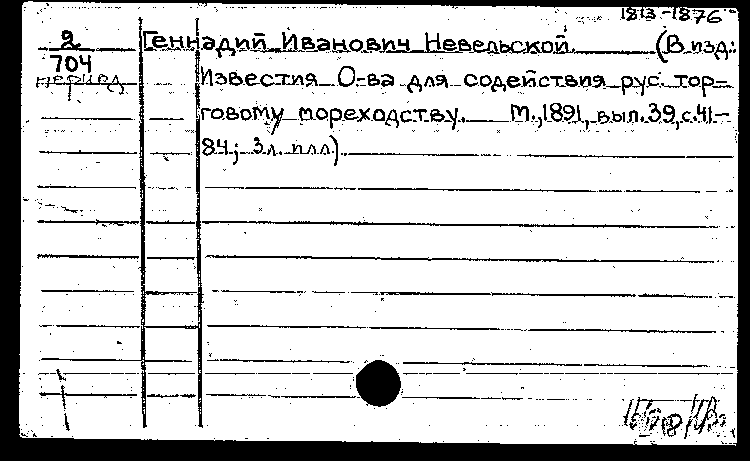 1813-1876
2 Геннадий Иванович Невельской. (В изд.:
704
период Известия О-ва для содействия рус. тор-
говому мореходству. М., 1891, вып. 39, с. 41-
84; 3 л. илл.)